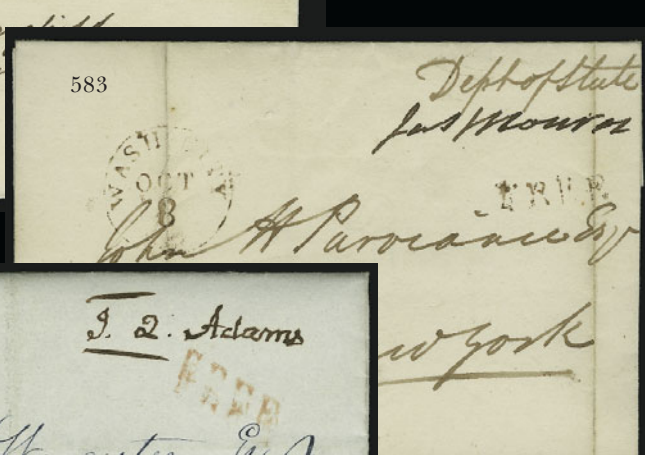 583
Dept of State
Jas Monroe
WASHN
OCT
8
FREE
John H Purviance Esqr
New York
J. Q. Adams
FREE
Esq